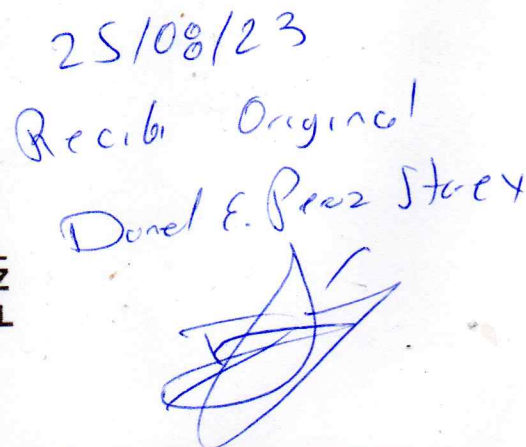 25/08/23
Recibi Original
Donel E. Perez
Z
L